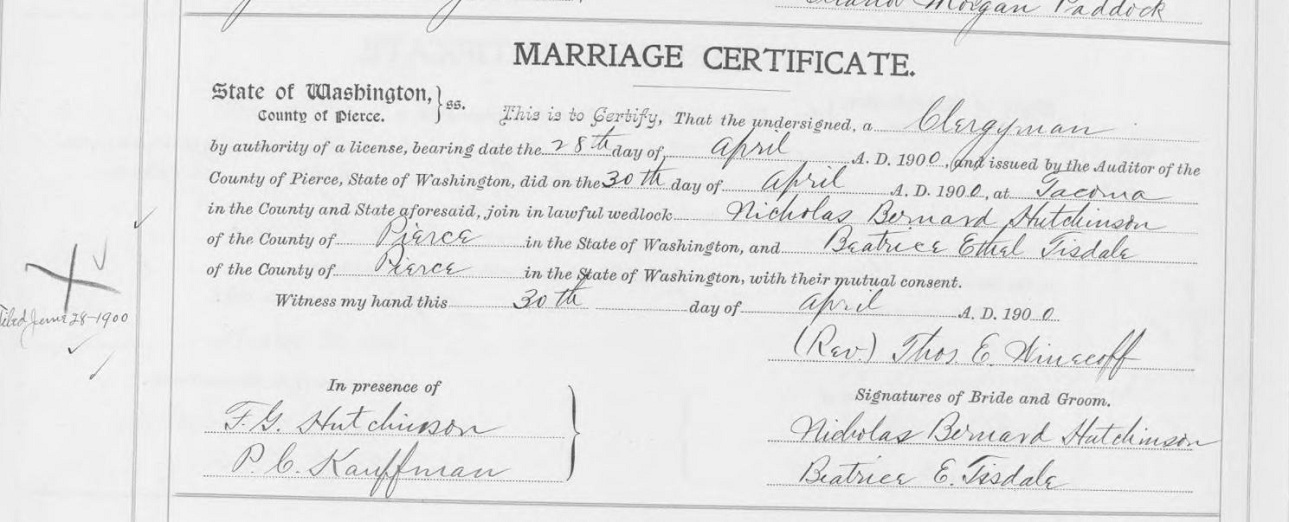 Morgan Paddock
MARRIAGE CERTIFICATE.
State of Washington, } ss.
County of Pierce.
This is to Certify, That the undersigned, a Clergyman
by authority of a license, bearing date the 28th day of April A. D. 1900, and issued by the Auditor of the
County of Pierce, State of Washington, did on the 30th day of April A. D. 1900, at Tacoma
in the County and State aforesaid, join in lawful wedlock Nicholas Bernard Hutchinson
of the County of Pierce in the State of Washington, and Beatrice Ethel Tisdale
of the County of Pierce in the State of Washington, with their mutual consent.
Witness my hand this 30th day of April A. D. 1900
Filed June 28-1900
(Rev.) Thos. E. Winecoff
In presence of
F. G. Hutchinson
P. C. Kauffman
Signatures of Bride and Groom.
Nicholas Bernard Hutchinson
Beatrice E. Tisdale